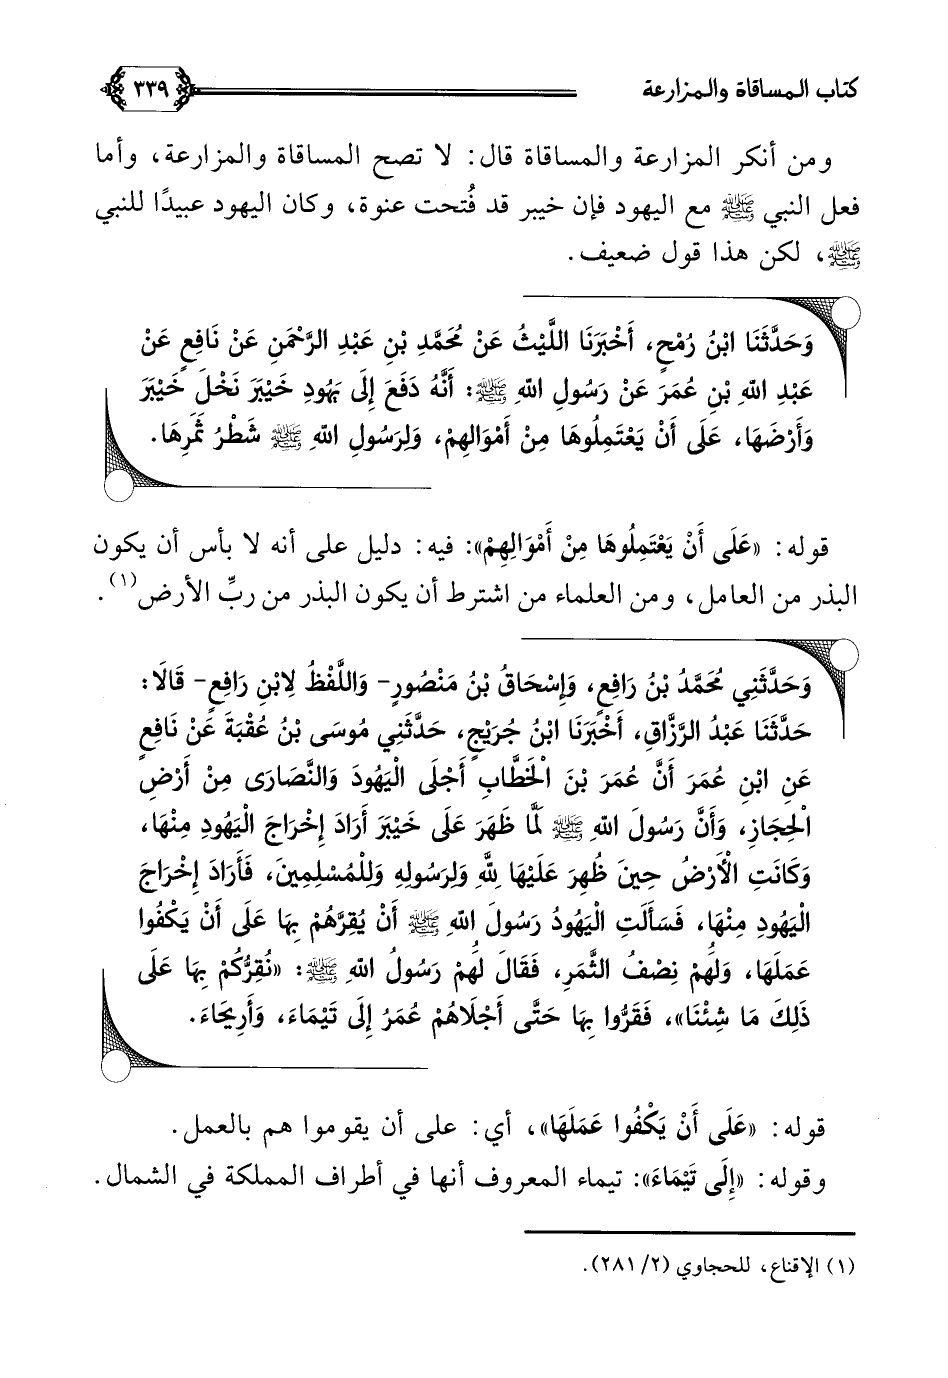 كتاب المساقاة والمزارعة ٣٣٩
ومن أنكر المزارعة والمساقاة قال: لا تصح المساقاة والمزارعة، وأما
فعل النبي ﷺ مع اليهود فإن خيبر قد فُتحت عنوة، وكان اليهود عبيدًا للنبي
ﷺ، لكن هذا قول ضعيف.
وَحَدَّثَنَا ابْنُ رُمْحٍ، أَخْبَرَنَا اللَّيْثُ عَنْ مُحَمَّدِ بْنِ عَبْدِ الرَّحْمَنِ عَنْ نَافِعٍ عَنْ
عَبْدِ اللهِ بْنِ عُمَرَ عَنْ رَسُولِ اللهِ ﷺ: أَنَّهُ دَفَعَ إِلَى يَهُودِ خَيْبَرَ نَخْلَ خَيْبَرَ
وَأَرْضَهَا، عَلَى أَنْ يَعْتَمِلُوهَا مِنْ أَمْوَالِهِمْ، وَلِرَسُولِ اللهِ ﷺ شَطْرُ ثَمَرِهَا.
قوله: «عَلَى أَنْ يَعْتَمِلُوهَا مِنْ أَمْوَالِهِمْ»: فيه: دليل على أنه لا بأس أن يكون
البذر من العامل، ومن العلماء من اشترط أن يكون البذر من ربِّ الأرض(١).
وَحَدَّثَنِي مُحَمَّدُ بْنُ رَافِعٍ، وَإِسْحَاقُ بْنُ مَنْصُورٍ- وَاللَّفْظُ لِابْنِ رَافِعٍ- قَالَا:
حَدَّثَنَا عَبْدُ الرَّزَّاقِ، أَخْبَرَنَا ابْنُ جُرَيْجٍ، حَدَّثَنِي مُوسَى بْنُ عُقْبَةَ عَنْ نَافِعٍ
عَنِ ابْنِ عُمَرَ أَنَّ عُمَرَ بْنَ الْخَطَّابِ أَجْلَى الْيَهُودَ وَالنَّصَارَى مِنْ أَرْضِ
الْحِجَازِ، وَأَنَّ رَسُولَ اللهِ ﷺ لَمَّا ظَهَرَ عَلَى خَيْبَرَ أَرَادَ إِخْرَاجَ الْيَهُودِ مِنْهَا،
وَكَانَتِ الْأَرْضُ حِينَ ظُهِرَ عَلَيْهَا لِلَّهِ وَلِرَسُولِهِ وَلِلْمُسْلِمِينَ، فَأَرَادَ إِخْرَاجَ
الْيَهُودِ مِنْهَا، فَسَأَلَتِ الْيَهُودُ رَسُولَ اللهِ ﷺ أَنْ يُقِرَّهُمْ بِهَا عَلَى أَنْ يَكْفُوا
عَمَلَهَا، وَلَهُمْ نِصْفُ الثَّمَرِ، فَقَالَ لَهُمْ رَسُولُ اللهِ ﷺ: «نُقِرُّكُمْ بِهَا عَلَى
ذَلِكَ مَا شِئْنَا»، فَقَرُّوا بِهَا حَتَّى أَجْلَاهُمْ عُمَرُ إِلَى تَيْمَاءَ، وَأَرِيحَاءَ.
قوله: «عَلَى أَنْ يَكْفُوا عَمَلَهَا»، أي: على أن يقوموا هم بالعمل.
وقوله: «إِلَى تَيْمَاءَ»: تيماء المعروف أنها في أطراف المملكة في الشمال.
(١) الإقناع، للحجاوي (٢/ ٢٨١).